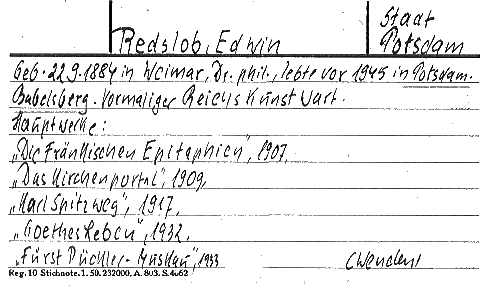 Stadt
Redslob, Edwin Potsdam
Geb. 22.9.1884 in Weimar, Dr. phil., lebte vor 1945 in Potsdam-
Babelsberg. Vormaliger Reichskunstwart.
Hauptwerke:
„Die Fränkischen Epitaphien", 1907,
„Das Kirchenportal", 1909,
„Karl Spitzweg", 1917,
„Goethes Leben", 1932,
„Fürst Pückler-Muskau", 1933
Reg. 10 Stichnote. 1. 50. 232000, A. 803. S. 4662